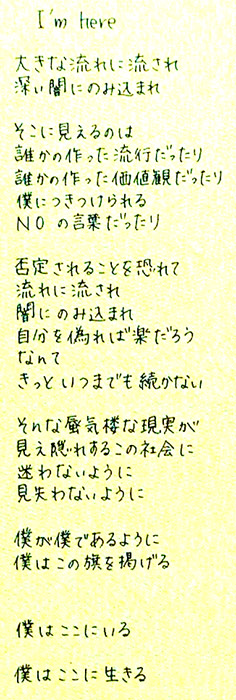 I'm here
大きな流れに流され
深い闇にのみ込まれ
そこに見えるのは
誰かの作った流行だったり
誰かの作った価値観だったり
僕につきつけられる
NOの言葉だったり
否定されることを恐れて
流れに流され
闇にのみ込まれ
自分を偽れば楽だろう
なんて
きっといつまでも続かない
そんな蜃気楼な現実が
見え隠れするこの社会に
迷わないように
見失わないように
僕が僕であるように
僕はこの旗を掲げる
僕はここにいる
僕はここに生きる